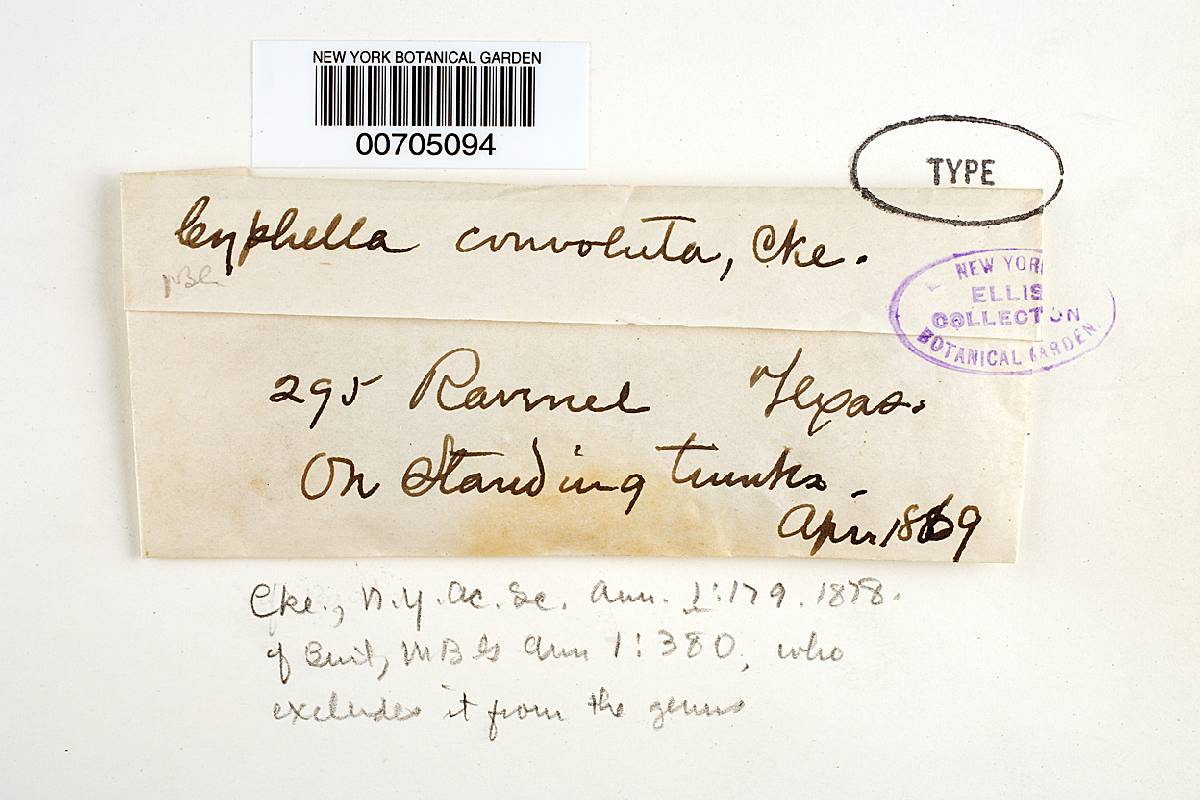 NEW YORK BOTANICAL GARDEN
00705094
TYPE
Cyphella convoluta, Cke.
NEW YORK
ELLIS
COLLECTION
BOTANICAL GARDEN.
295 Ravenel Texas.
On Standing trunks.
Apr. 1869
Cke., N.Y. Ac. Sc. Ann. 1:179. 1878.
cf Burt, MBG Ann 1:380, who
excludes it from the genus